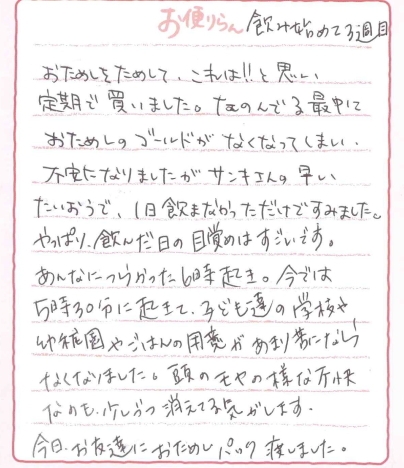 お便りらん 飲み始めて3週目
おためしをためして、これは!!と思い
定期で買いました。なのんでる最中に
おためしのゴールドがなくなってしまい、
不安になりましたがサンキエんの早い
たいおうで、1日飲まなかっただけですみました。
やっぱり、飲んだ日の目覚めはすごいです。
あんなにつらかった6時起き。今では
5時30分に起きて、子ども達の学校や
幼稚園やごはんの用意があまり苦になら
なくなりました。頭のモヤの様な不快
なのも、少しづつ消えてる気がします。
今日、お友達におためしパック渡しました。